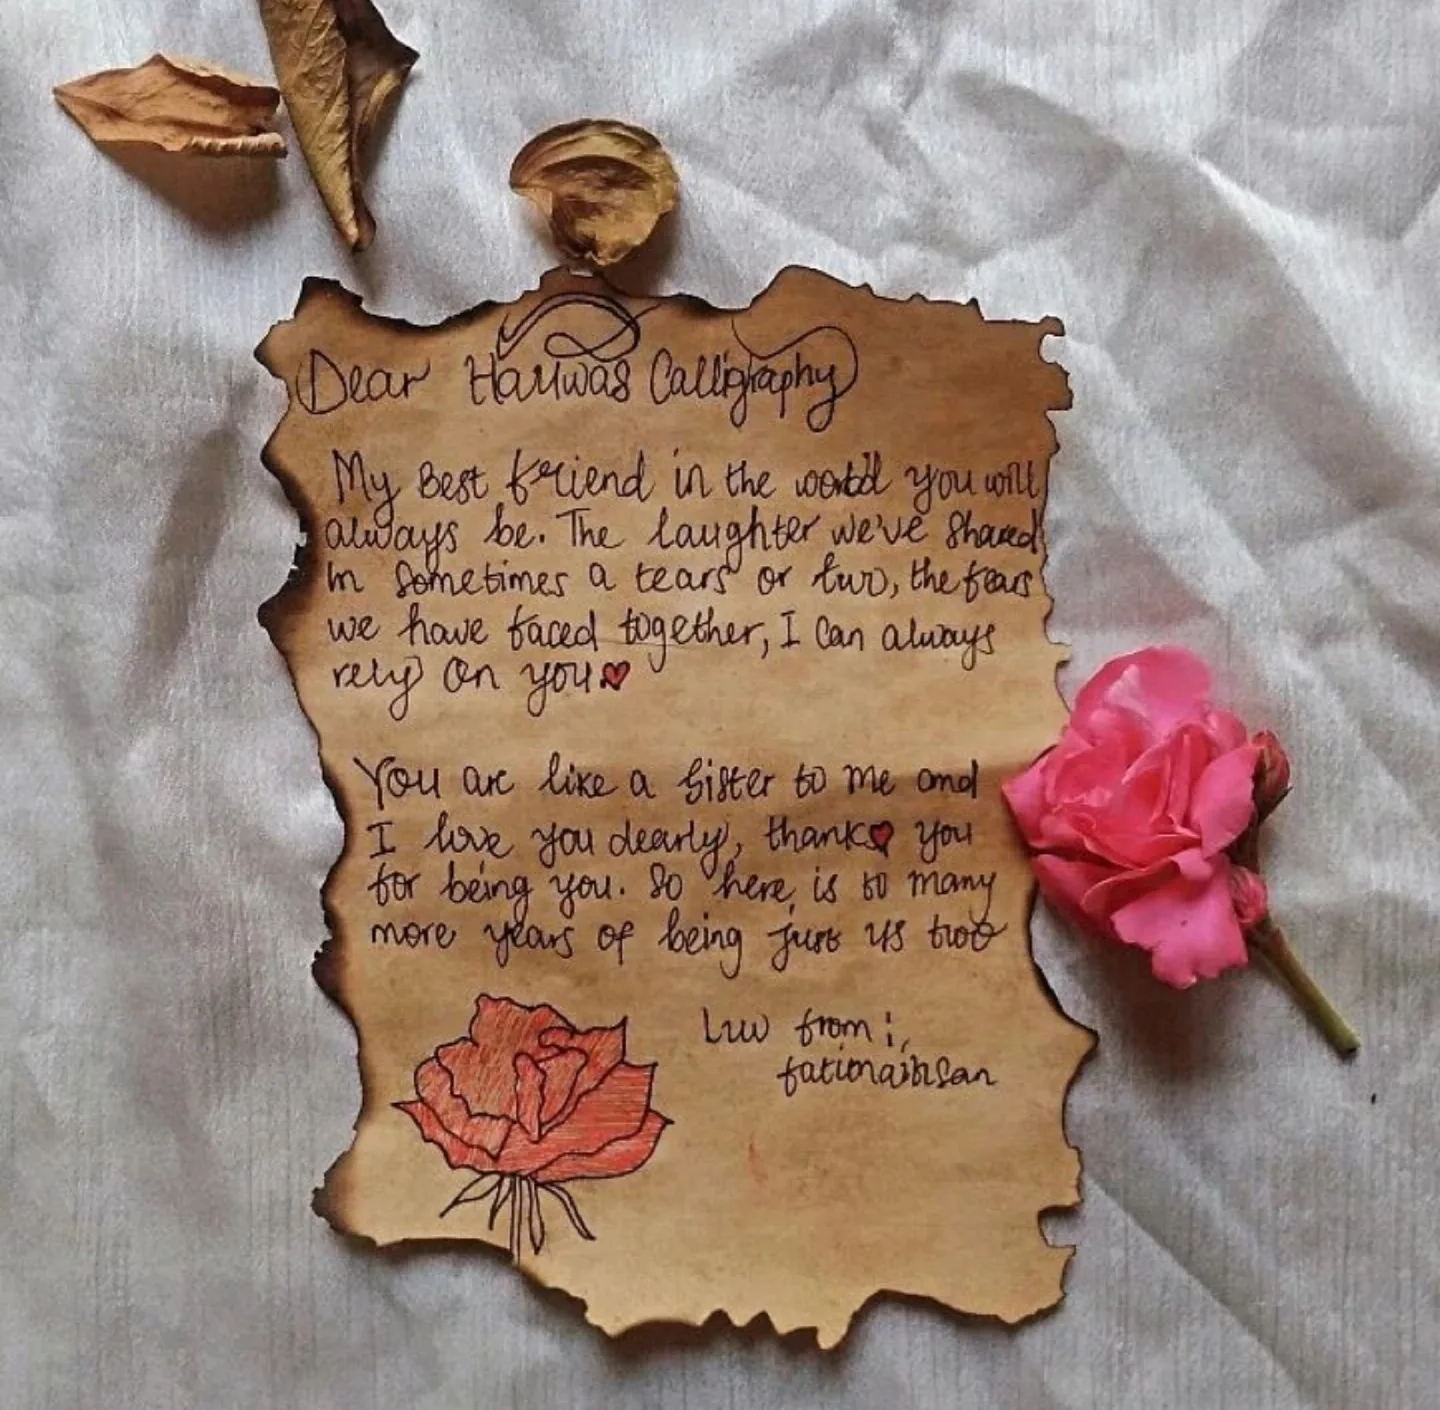 Dear Hauwas Calligraphy
My Best friend in the world you will
always be. The laughter we've shared
in sometimes a tears or two, the fears
we have faced together, I can always
rely on you
You are like a sister to me and
I love you dearly, thanks you
for being you. So here is to many
more years of being just us two
Luv from ;,